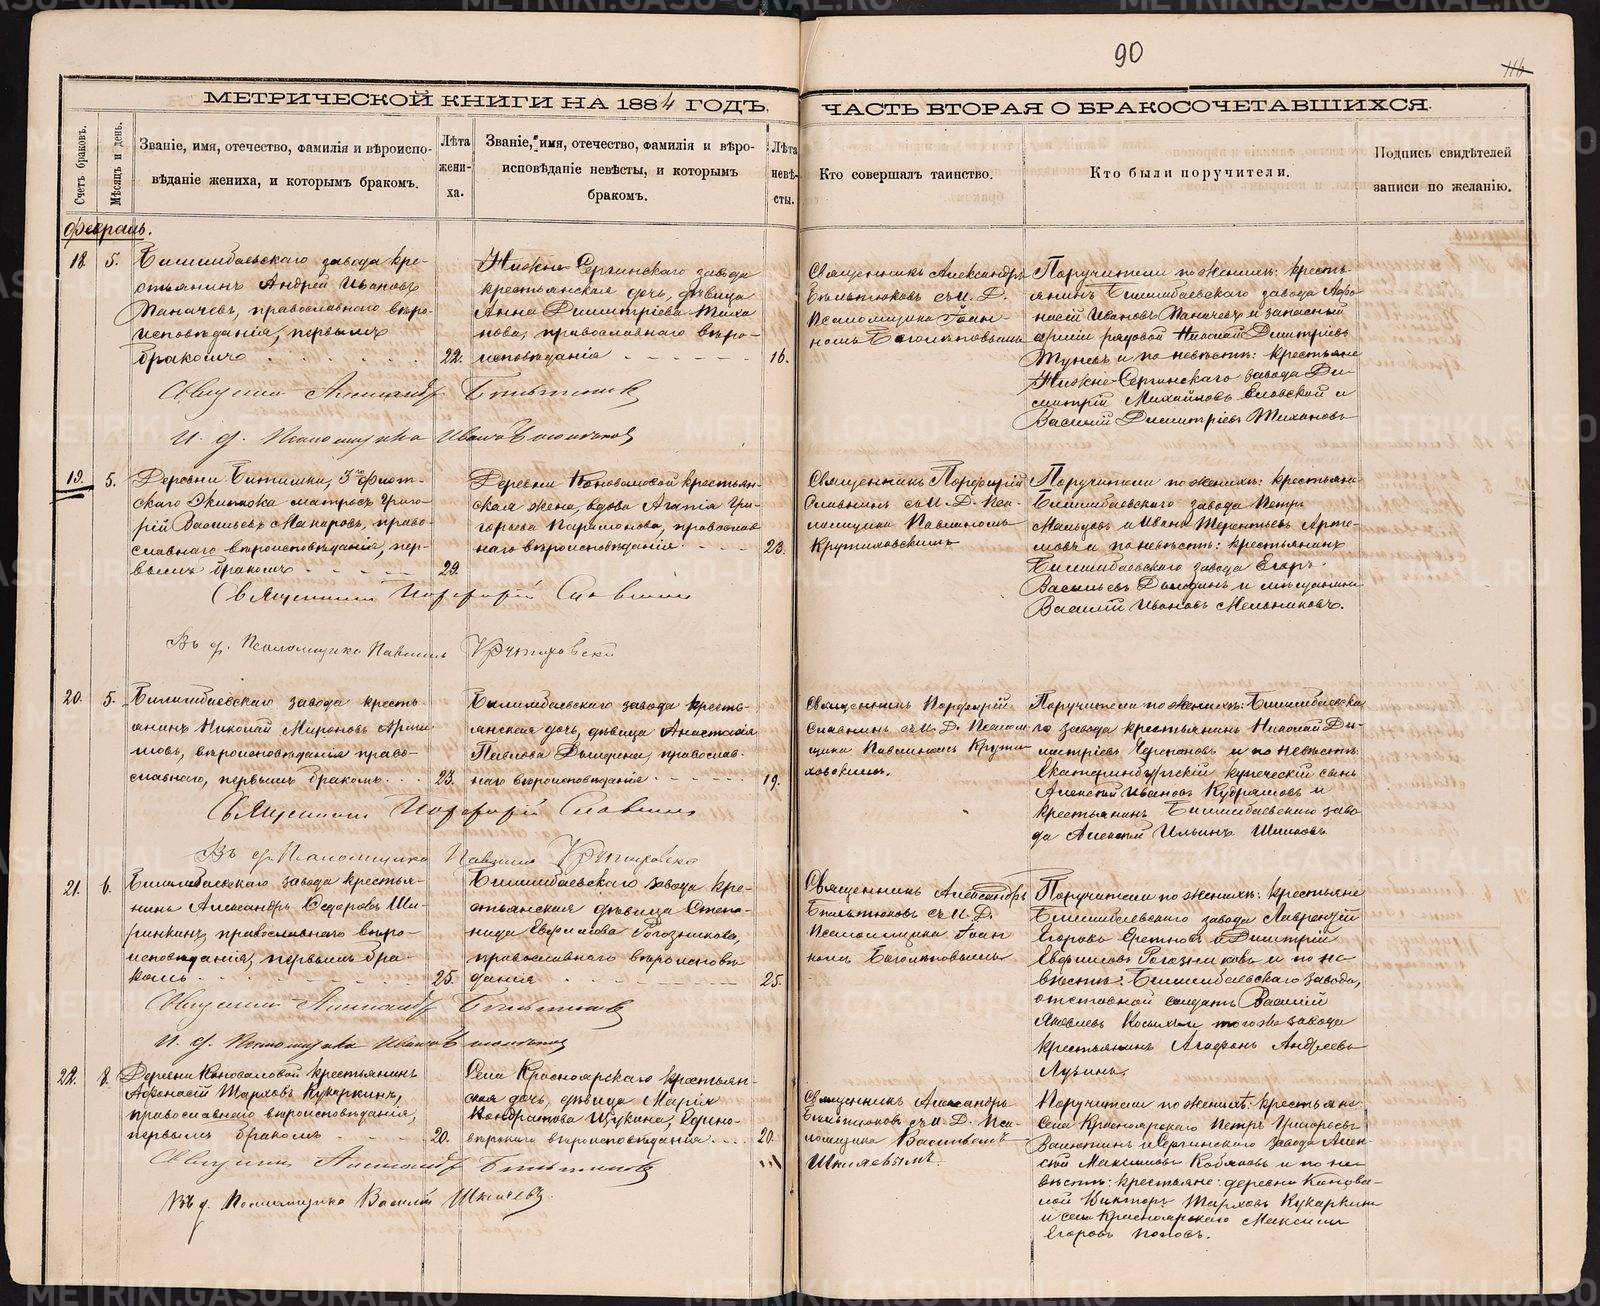 90
116
МЕТРИЧЕСКОЙ КНИГИ НА 1884 ГОДЪ,
ЧАСТЬ ВТОРАЯ О БРАКОСОЧЕТАВШИХСЯ.
Счетъ браковъ.
Мѣсяцъ и день.
Званіе, имя, отечество, фамилія и вѣроиспо-
вѣданіе жениха, и которымъ бракомъ.
Лѣта
жени-
ха.
Званіе, имя, отечество, фамилія и вѣро-
исповѣданіе невѣсты, и которымъ
бракомъ.
Лѣта
невѣ-
сты.
Кто совершалъ таинство.
Кто были поручители.
Подпись свидѣтелей
записи по желанію.
Февраль.
18. 5.
Билимбаевскаго завода кре-
стьянинъ Андрей Ивановъ
Паначевъ, православнаго вѣро-
исповѣданія, первымъ
бракомъ
22.
Нижне-Сергинскаго завода
крестьянская дочь, дѣвица
Анна Димитріева Тиха
нова, православнаго вѣро-
исповѣданія
16.
Священникъ Александръ
Бѣльтюковъ съ И. Д.
Псаломщика Іоан
номъ Боголѣповымъ
Поручители по женихѣ: кресть
янинъ Билимбаевскаго завода Афо
насій Ивановъ Паначевъ и запасный
арміи рядовой Николай Димитріевъ
и по невѣстѣ: крестьяне
Нижне-Сергинскаго завода Ди-
митрій Михайловъ и
Василій Димитріевъ Тихановъ
Священникъ Александръ Бѣльтюковъ
И. д. Псаломщика Иванъ Боголѣповъ
19. 5.
Деревни Битимки, 3го флот-
скаго Экипажа матросъ Григо-
рій Васильевъ Макаровъ, право-
славнаго вѣроисповѣданія, пер-
вымъ бракомъ
29.
Деревни Коноваловой крестьян-
ская жена, вдова Агапія Гри-
горьева Парамонова, православ
наго вѣроисповѣданія
23.
Священникъ Порфирій
Славнинъ съ И. Д. Пса-
ломщика Павлиномъ
Крутиховскимъ
Поручители по женихѣ: крестьяне
Билимбаевскаго завода Петръ
Мальцовъ и Иванъ Терентьевъ Арте-
мовъ и по невѣстѣ: крестьянинъ
Билимбаевскаго завода Егоръ
Васильевъ и мѣщанинъ
Василій Ивановъ Мельниковъ.
Священникъ Порфирій Славнинъ
Въ д. Псаломщика Павлинъ Крутиховскій
20. 5.
Билимбаевскаго завода кресть-
янинъ Николай Мироновъ
вѣроисповѣданія право-
славнаго, первымъ бракомъ
23.
Билимбаевскаго завода кресть-
янская дочь, дѣвица Анастасія
Павлова православ-
наго вѣроисповѣданія
19.
Священникъ Порфирій
Славнинъ съ И. Д. Псалом
щика Павлиномъ Крути
ховскимъ.
Поручители по женихѣ: Билимбаевска
го завода крестьянинъ Николай Ди-
митріевъ Черепановъ и по невѣстѣ:
Екатеринбургскій купеческій сынъ
Алексѣй Ивановъ Кудряшовъ и
крестьянинъ Билимбаевскаго заво
да Алексѣй Ильинъ
Священникъ Порфирій Славнинъ
Въ д. Псаломщика Павлинъ Крутиховскій
21. 6.
Билимбаевскаго завода крестья-
нинъ Александръ Ѳедоровъ Ши-
ринкинъ, православнаго вѣро-
исповѣданія, первымъ бра-
комъ
25.
Билимбаевскаго завода кре-
стьянская дѣвица Степа-
нида Евфимова Рогозникова,
православнаго вѣроисповѣ
данія
25.
Священникъ Александръ
Бѣльтюковъ съ И. Д.
Псаломщика Іоан
номъ Боголѣповымъ
Поручители по женихѣ: крестьяне
Билимбаевскаго завода Лаврентій
Егоровъ и Димитрій
Евфимовъ Рогозниковъ и по не
вѣстѣ: Билимбаевскаго завода,
отставной солдатъ Василій
Яковлевъ Косыхъ и того же завода
крестьянинъ Агафонъ Андреевъ
Лузинъ.
Священникъ Александръ Бѣльтюковъ
И. д. Псаломщика Иванъ Боголѣповъ
22. 8.
Деревни Коноваловой крестьянинъ
Афонасій Тарховъ Кукаркинъ,
православнаго вѣроисповѣданія,
первымъ бракомъ
20.
Села Красноярскаго крестьян-
ская дочь, дѣвица Марія
Кондратова Щукина, едино-
вѣрскаго вѣроисповѣданія
20.
Священникъ Александръ
Бѣльтюковъ съ И. Д. Пса-
ломщика Василіемъ
Шкляевымъ.
Поручители по женихѣ: крестьяне
села Красноярскаго Петръ Григорьевъ
и Сергинскаго завода Алек-
сѣй Максимовъ и по не-
вѣстѣ: крестьяне: деревни Конова-
ловой Викторъ Тарховъ Кукаркинъ
и села Красноярскаго Максимъ
Егоровъ Поповъ.
Священникъ Александръ Бѣльтюковъ
Въ д. Псаломщика Василій Шкляевъ
METRIKI.GASO-URAL.RU